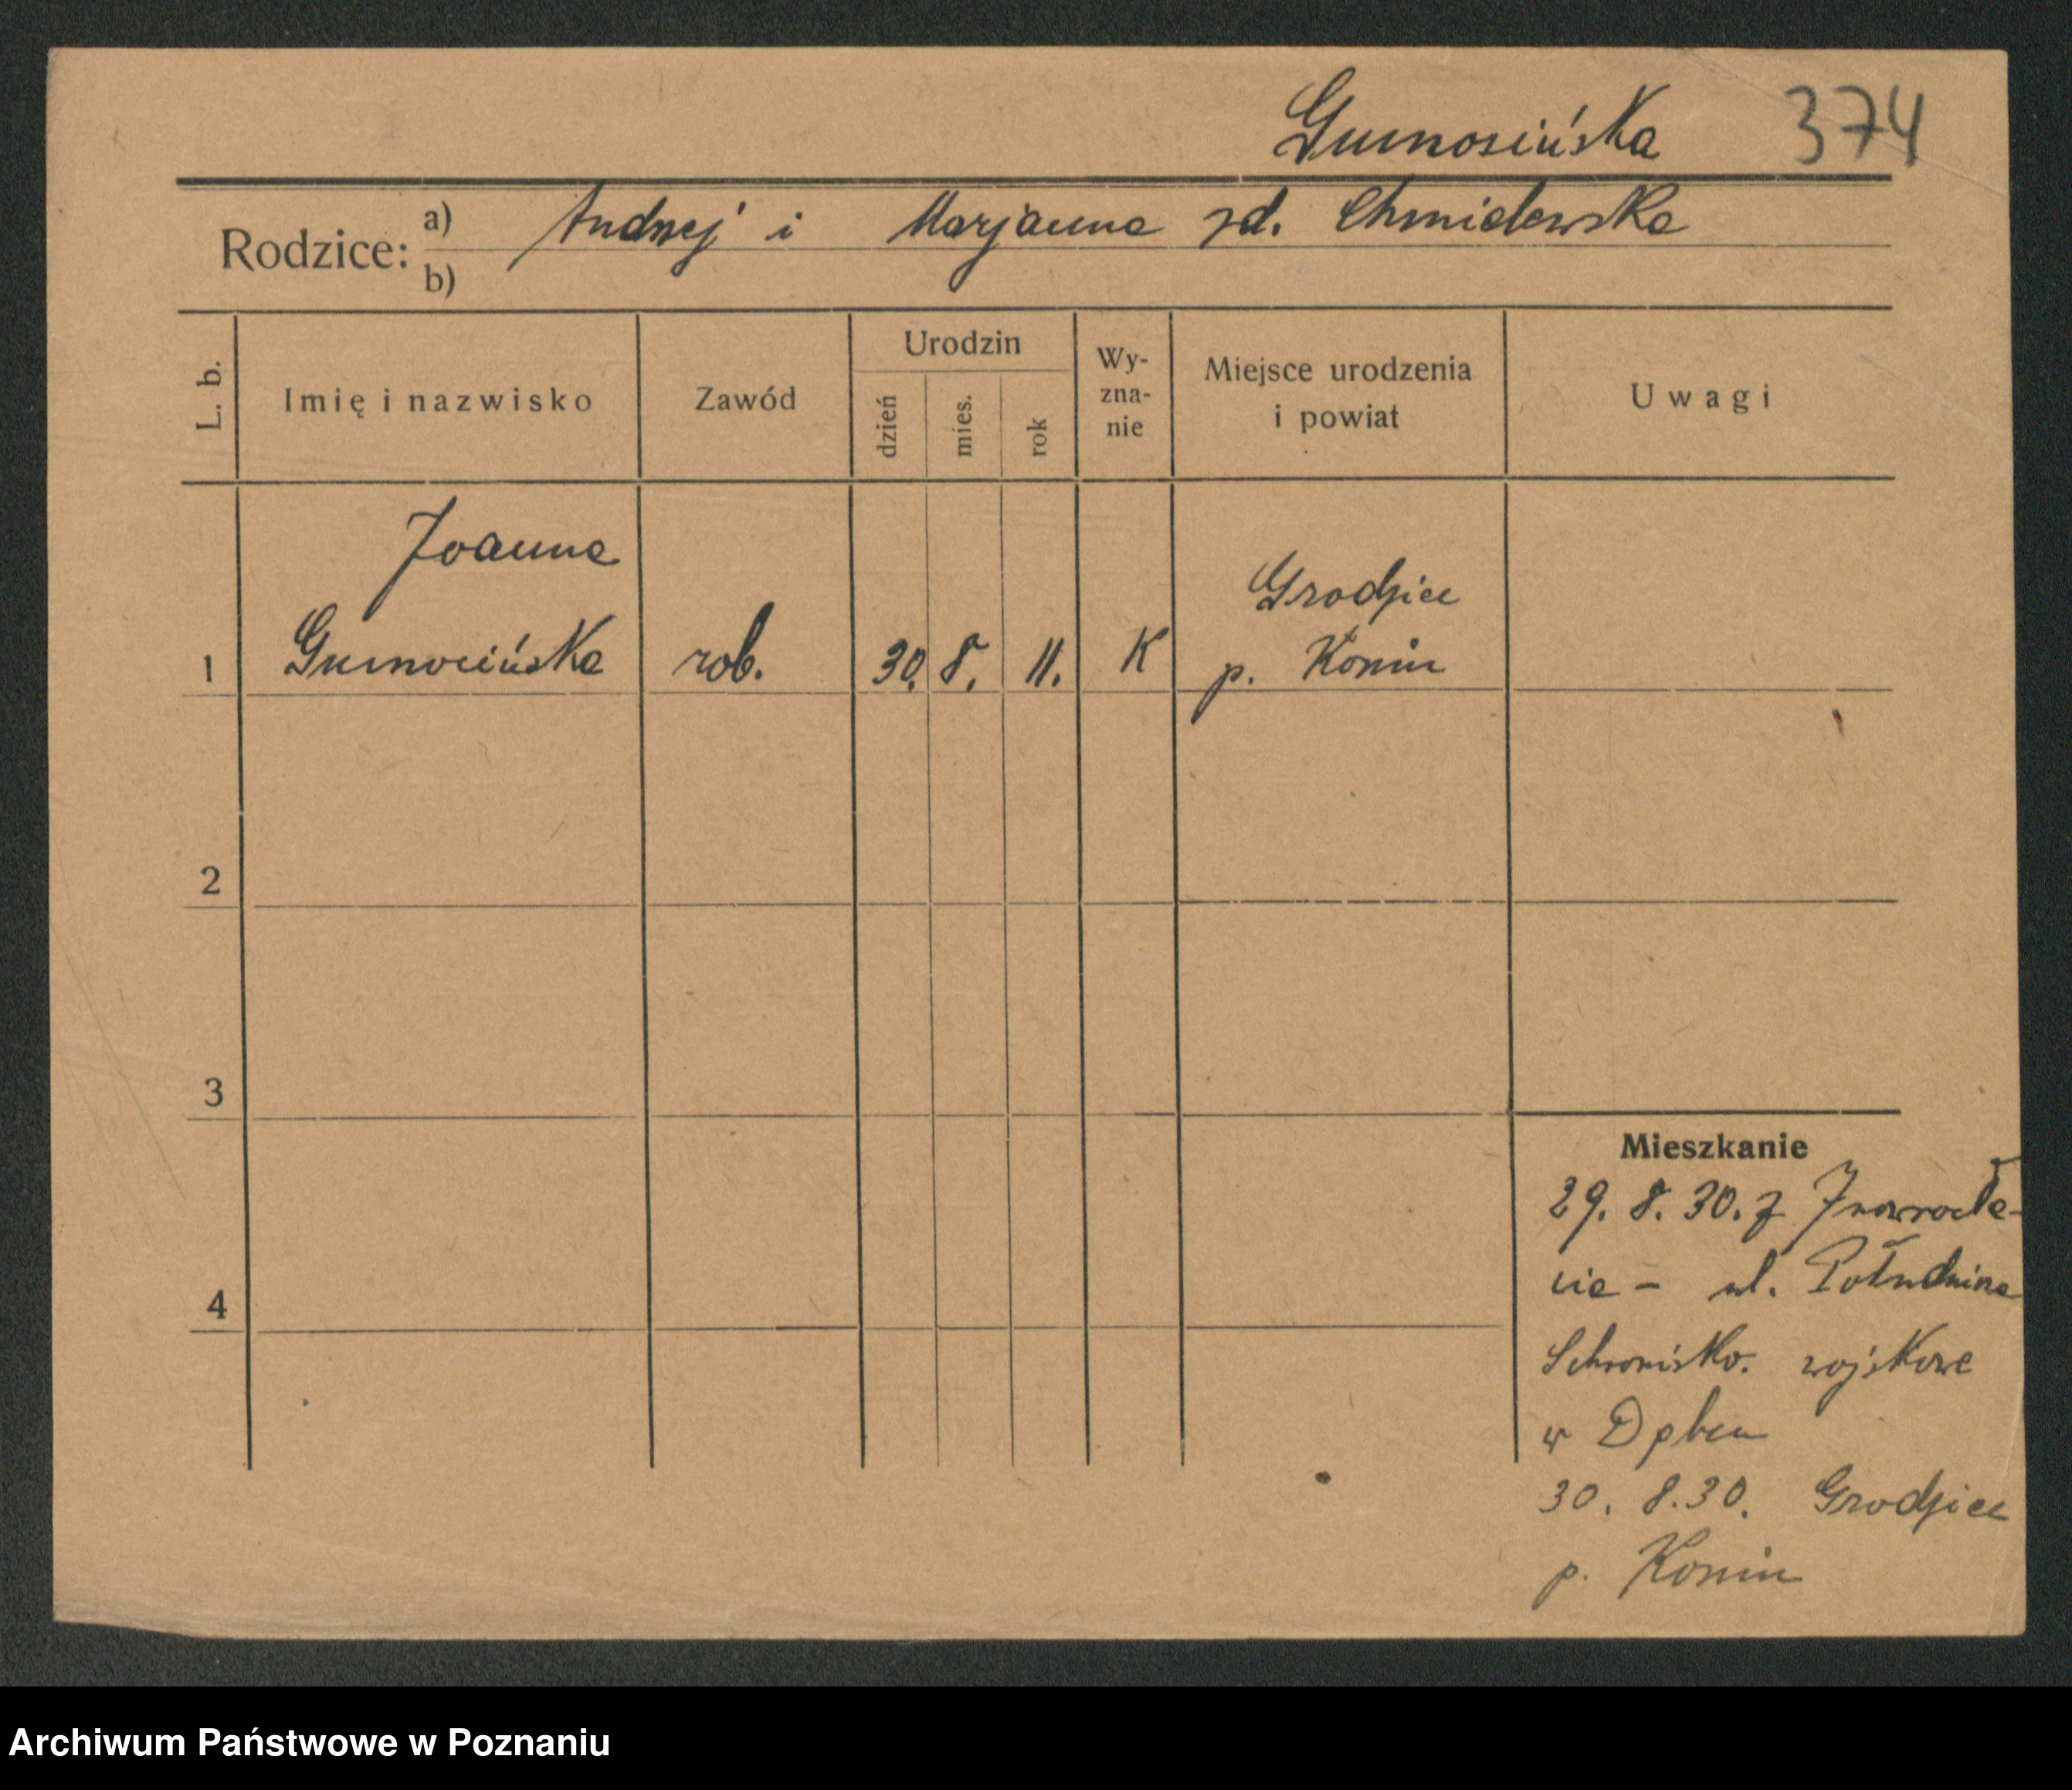 Gumosińska 374
Rodzice: a) Andrzej i Marjanna zd. Chmielewska
b)
L. b. Imię i nazwisko Zawód Urodzin dzień mies. rok Wy-
zna-
nie Miejsce urodzenia
i powiat Uwagi
Joanna
Grodziec
1 Gumosińska rob. 30. 8. 11. K p. Konin
2
3
4
Mieszkanie
29. 8. 30. z Inowrocła-
wia - ul. Południowa
Schronisko. wojskowe
w Dębcu
30. 8. 30. Grodziec
p. Konin
Archiwum Państwowe w Poznaniu